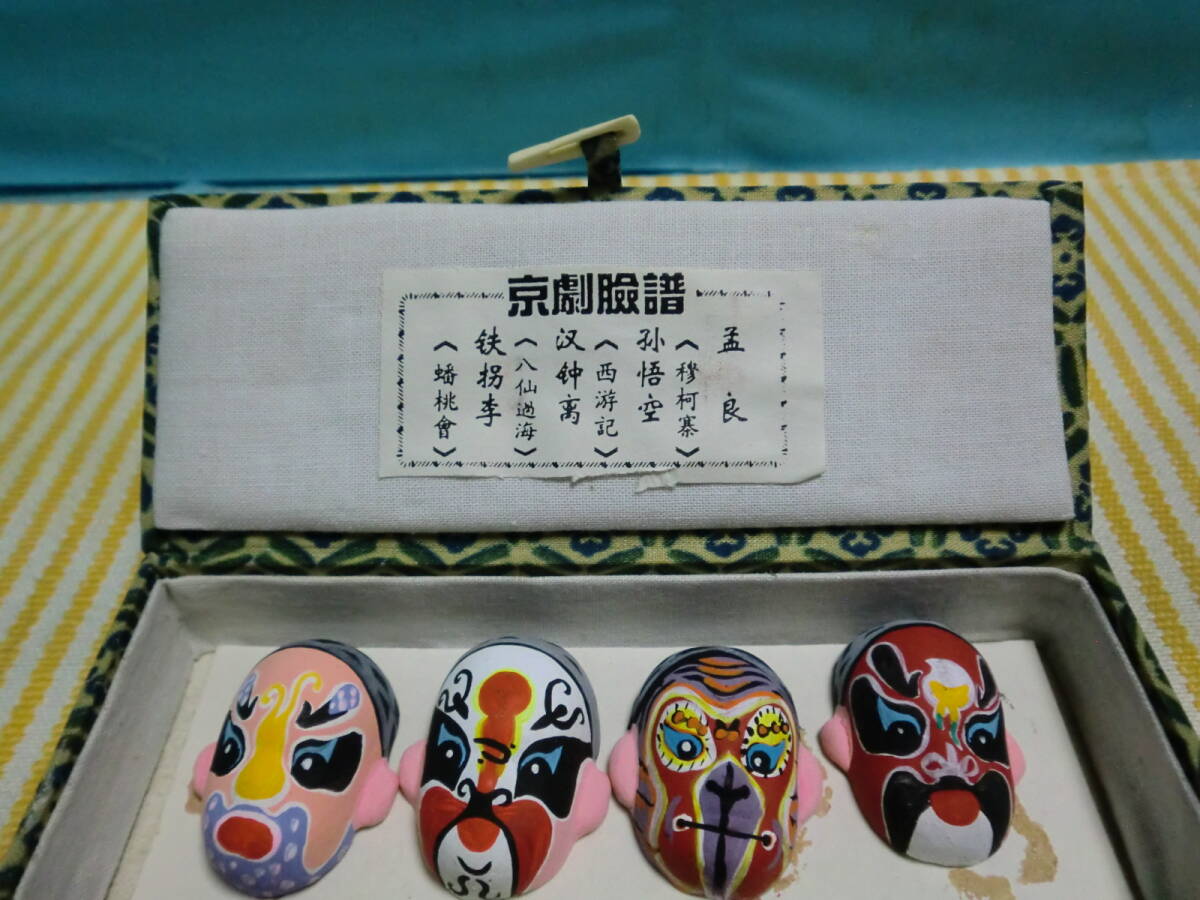 京劇臉譜
孟良
《穆柯寨》
孙悟空
《西游記》
汉钟离
《八仙過海》
铁拐李
《蟠桃會》